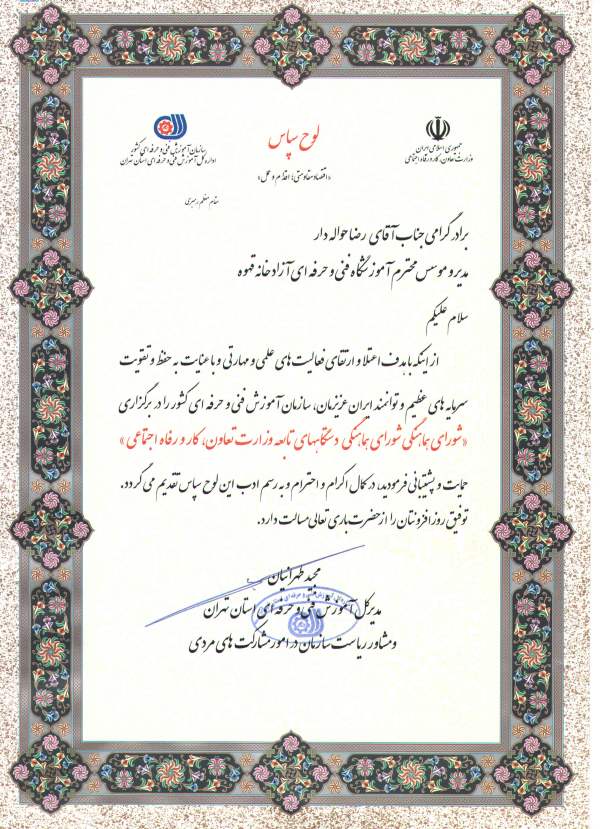 لوح سپاس
«اقتصاد مقاومتی؛ اقدام و عمل»
مقام معظم رهبری
جمهوری اسلامی ایران
وزارت تعاون، کار و رفاه اجتماعی
سازمان آموزش فنی و حرفه ای کشور
اداره کل آموزش فنی و حرفه ای استان تهران
برادر گرامی جناب آقای رضا حواله دار
مدیر و موسس محترم آموزشگاه فنی و حرفه ای آزاد خانه قهوه
سلام علیکم
از اینکه با هدف اعتلا و ارتقای فعالیت های علمی و مهارتی و با عنایت به حفظ و تقویت
سرمایه های عظیم و توانمند ایران عزیزمان، سازمان آموزش فنی و حرفه ای کشور را در برگزاری
«شورای هماهنگی شورای هماهنگی دستگاههای تابعه وزارت تعاون، کار و رفاه اجتماعی»
حمایت و پشتیبانی فرمودید، در کمال اکرام و احترام و به رسم ادب این لوح سپاس تقدیم می گردد.
توفیق روز افزونتان را از حضرت باری تعالی مسالت دارد.
مجید طهرانیان
مدیر کل آموزش فنی و حرفه ای استان تهران
و مشاور ریاست سازمان در امور مشارکت های مردمی